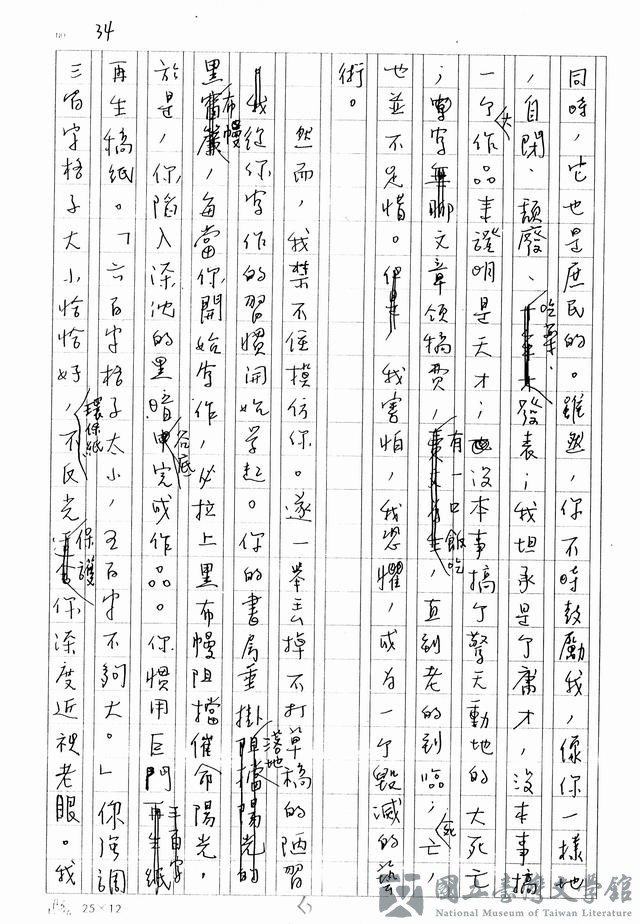 34
同時，它也是庶民的。雖然，你不時鼓勵我，像你一樣地
，自閉、頹廢、吃藥、發表；我坦承是个庸才，沒本事搞
一个大作品来證明是天才；也沒本事搞个驚天動地的大死亡
；寫字無聊文章領稿費，有一口飯吃，直到老的到臨；死亡，
也並不足惜。但是我害怕，我恐懼，成為一个毀滅的藝
術。
然而，我禁不住摸仿你。遂一舉去掉不打草稿的陋習
我從你字作的習慣開始學起。你的書房垂掛落地阻擋陽光的
黑布幔，每當你開始写作，必拉上黑布幔阻擋催命陽光，
於是，你陷入深沈的黑暗谷底完成作品。你慣用巨門三百字再生紙
再生稿紙。「六百字格子太小，五百字不夠大。」你強調
三百字格子大小恰恰好，環保紙不反光保護你深度近視老眼。我
25×12
國立臺灣文學館
National Museum of Taiwan Literature